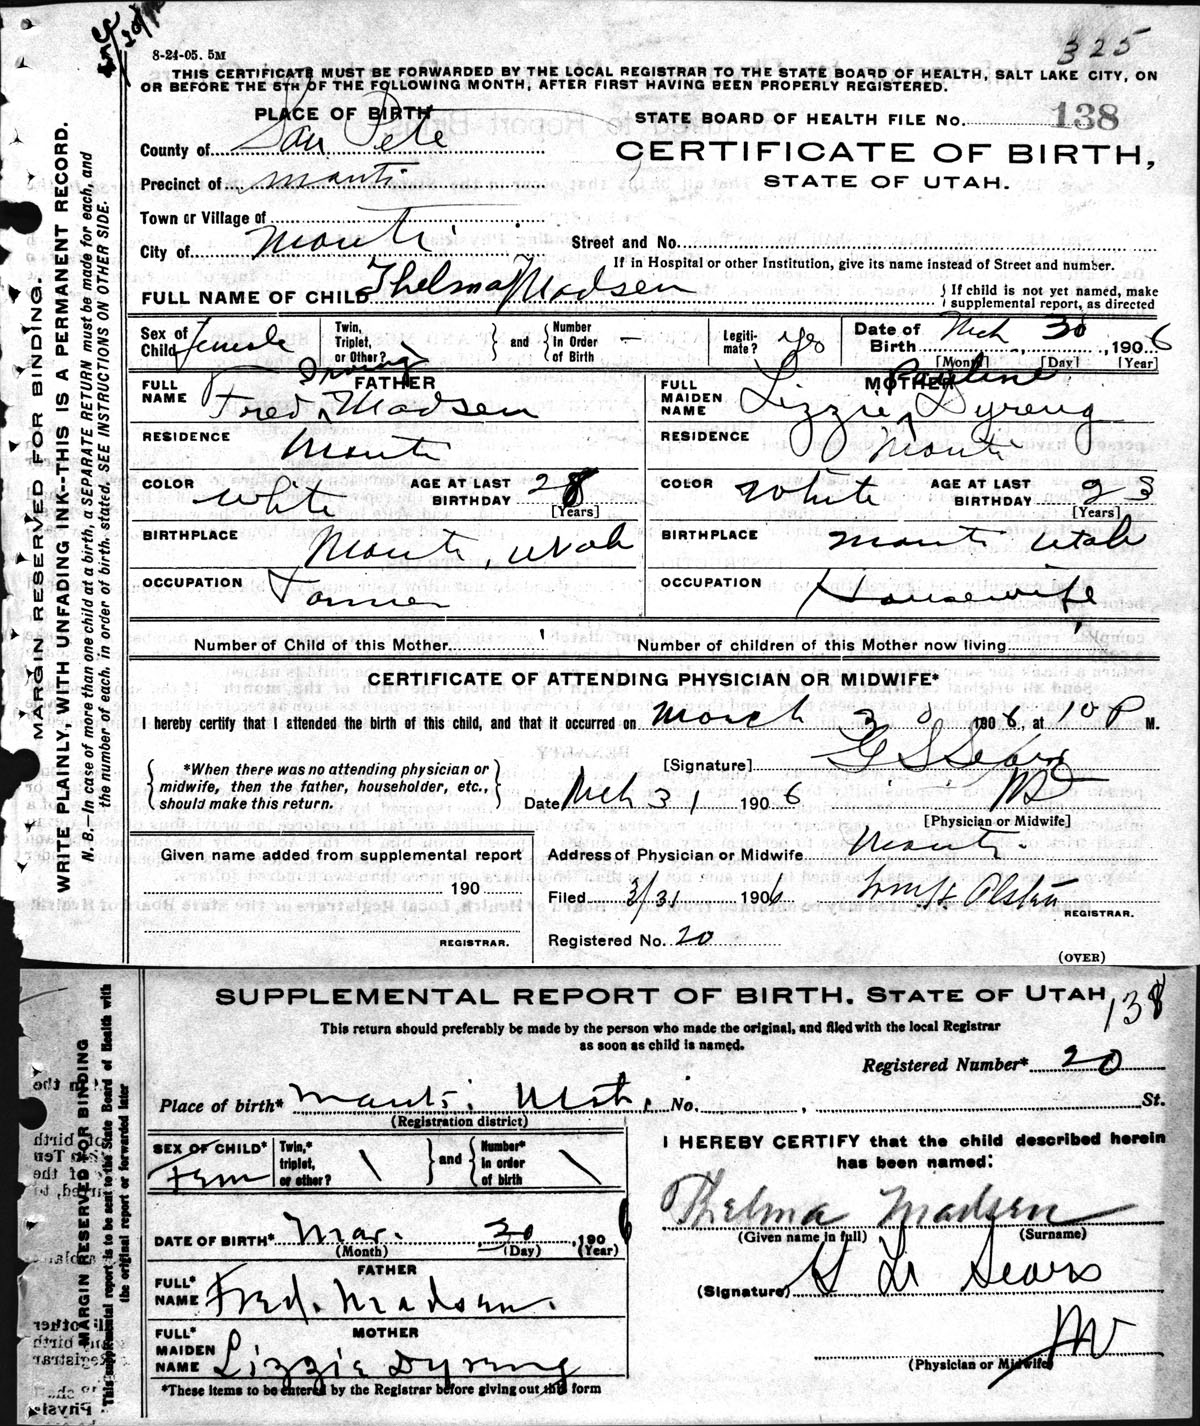 325
8-24-05. 5M
THIS CERTIFICATE MUST BE FORWARDED BY THE LOCAL REGISTRAR TO THE STATE BOARD OF HEALTH, SALT LAKE CITY, ON
OR BEFORE THE 5TH OF THE FOLLOWING MONTH, AFTER FIRST HAVING BEEN PROPERLY REGISTERED.
MARGIN RESERVED FOR BINDING.
WRITE PLAINLY, WITH UNFADING INK--THIS IS A PERMANENT RECORD.
N. B.—In case of more than one child at a birth, a SEPARATE RETURN must be made for each and
the number of each, in order of birth, stated. SEE INSTRUCTIONS ON OTHER SIDE.
PLACE OF BIRTH
STATE BOARD OF HEALTH FILE No. 138
County of San Pete
CERTIFICATE OF BIRTH,
Precinct of Manti
STATE OF UTAH.
Town or Village of
City of Manti
Street and No.
If in Hospital or other Institution, give its name instead of Street and number.
FULL NAME OF CHILD Thelma Madsen
{ If child is not yet named, make
supplemental report, as directed
Sex of Child Female
Twin, Triplet, or Other? } and { Number in Order of Birth —
Legiti-mate? yes
Date of Birth Mch 30, 1906
[Month] [Day] [Year]
FATHER
FULL NAME Fred Irving Madsen
RESIDENCE Manti
COLOR White AGE AT LAST BIRTHDAY 28 [Years]
BIRTHPLACE Manti, Utah
OCCUPATION Tanner
MOTHER
FULL MAIDEN NAME Lizzie Pauline Dyreng
RESIDENCE Manti
COLOR White AGE AT LAST BIRTHDAY 23 [Years]
BIRTHPLACE Manti Utah
OCCUPATION Housewife
Number of Child of this Mother 1 Number of children of this Mother now living 1
CERTIFICATE OF ATTENDING PHYSICIAN OR MIDWIFE*
I hereby certify that I attended the birth of this child, and that it occurred on March 30 1906, at 10 P M.
{ *When there was no attending physician or
midwife, then the father, householder, etc.,
should make this return. }
[Signature] G L Sears
Date Mch 31 1906 MD
[Physician or Midwife]
Given name added from supplemental report
190
REGISTRAR.
Address of Physician or Midwife Manti
Filed 3/31 1906
REGISTRAR.
Registered No. 20
(OVER)
SUPPLEMENTAL REPORT OF BIRTH. STATE OF UTAH
138
This return should preferably be made by the person who made the original, and filed with the local Registrar
as soon as child is named.
MARGIN RESERVED FOR BINDING
This supplemental report is to be sent to the State Board of Health with
the original report or forwarded later
Registered Number* 20
Place of birth* Manti, Utah, No. , St.
(Registration district)
SEX OF CHILD* Fem
Twin,* triplet, or other? \ } and { Number* in order of birth \
DATE OF BIRTH* Mar. 30, 1906
(Month) (Day) (Year)
FATHER
FULL* NAME Fred. Madsen.
MOTHER
FULL* MAIDEN NAME Lizzie Dyreng
*These items to be entered by the Registrar before giving out this form
I HEREBY CERTIFY that the child described herein
has been named:
Thelma Madsen
(Given name in full) (Surname)
(Signature) G L Sears
(Physician or Midwife)